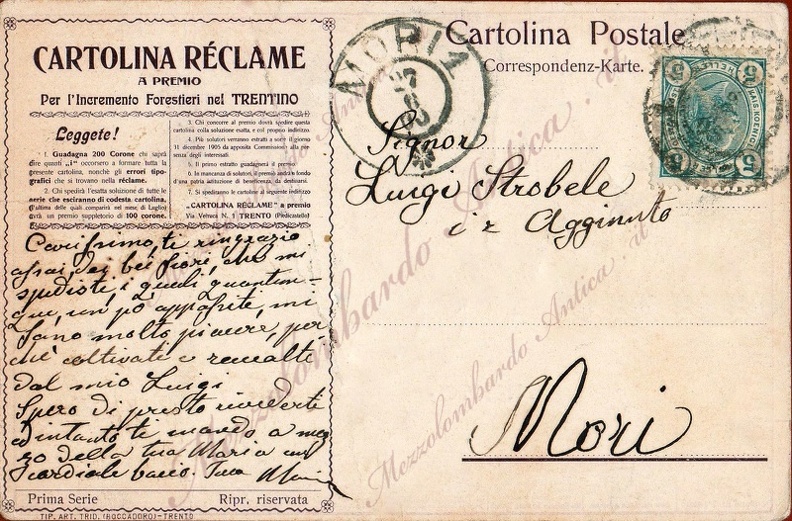 CARTOLINA RÉCLAME
A PREMIO
Per l'Incremento Forestieri nel TRENTINO
Leggete!
1. Guadagna 200 Corone chi saprà
dire quanti „i" occorsero a formare tutta la
presente cartolina, nonchè gli errori tipo-
grafici che si trovano nella réclame.
2. Chi spedirà l'esatta soluzione di tutte le
serie che esciranno di codesta cartolina,
(l'ultima delle quali comparirà nel mese di Luglio)
avrà un premio suppletorio di 100 corone.
3. Chi concorre al premio dovrà spedire questa
cartolina colla soluzione esatta, e col proprio indirizzo.
4. Più solutori verranno estratti a sorte il giorno
31 dicembre 1905 da apposita Commissione alla pre-
senza degli interessati.
5. Il primo estratto guadagnerà il premio.
6. In mancanza di solutori, il premio andrà a fondo
d'una patria istituzione di beneficenza, da destinarsi.
7. Si spediranno le cartoline al seguente indirizzo
„CARTOLINA RÉCLAME" a premio
Via Verruca N. 1 TRENTO (Piedicastello)
Carissimo, ti ringrazio
assai, dei bei fiori, che mi
spediste i quali quantun-
que, un pò appassite, mi
fano molto piacere, per
chè coltivati e
dal mio Luigi
Spero di presto rivederti
ed intanto te mando a mez
zo della tua Maria un
cordiale bacio. Tua
Prima Serie
Ripr. riservata
TIP. ART. TRID. (BOCCADORO)-TRENTO
Cartolina Postale
Correspondenz-Karte.
MORI
Signor
Luigi Strobele
i r Aggiunto
Mori
5
5
5
HELLER
Mezzolombardo Antica . it
Mezzolombardo Antica . it